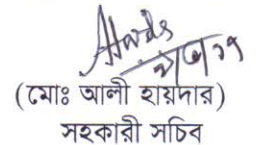 (মোঃ আলী হায়দার)
সহকারী সচিব